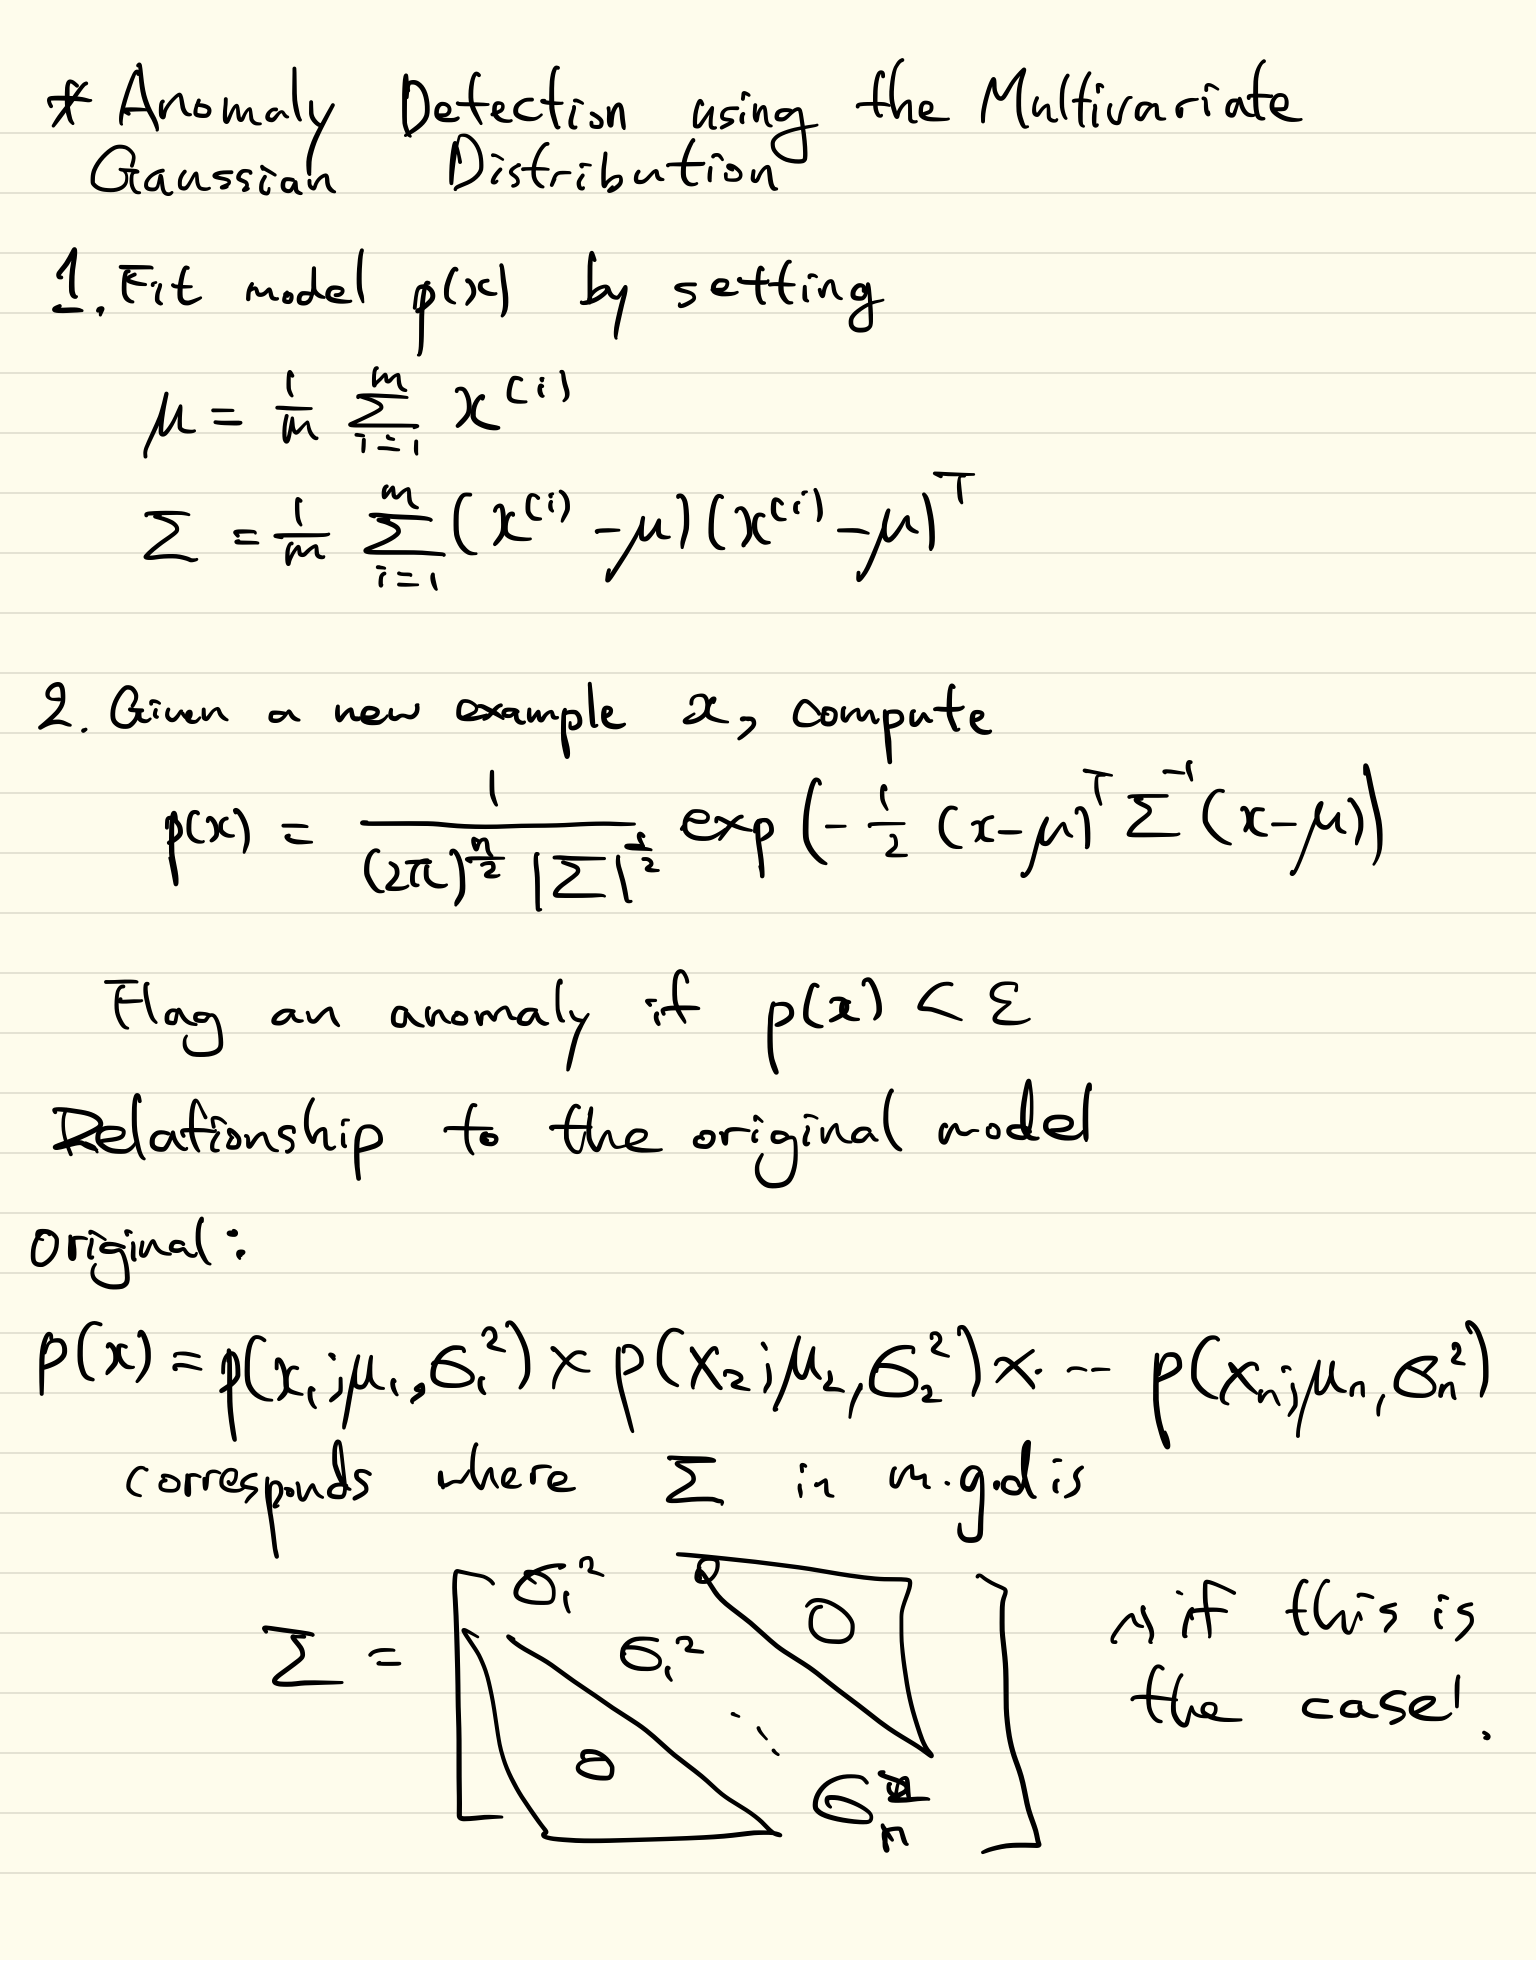 * Anomaly Detection using the Multivariate
Gaussian Distribution
1. Fit model p(x) by setting
μ = 1/m Σ_{i=1}^{m} x^{(i)}
Σ = 1/m Σ_{i=1}^{m} (x^{(i)} - μ)(x^{(i)} - μ)^T
2. Given a new example x, compute
p(x) = 1 / ((2π)^{n/2} |Σ|^{1/2}) exp(-1/2 (x-μ)^T Σ^{-1} (x-μ))
Flag an anomaly if p(x) < ε
Relationship to the original model
original:
p(x) = p(x_1; μ_1, σ_1^2) × p(x_2; μ_2, σ_2^2) × ... p(x_n; μ_n, σ_n^2)
corresponds where Σ in m.g.d is
Σ = [ σ_1^2 0 σ_1^2 0 ... σ_n^2 ]
if this is
the case!